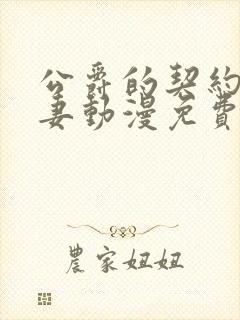 公爵的契約
妻動漫免費
農家妞妞